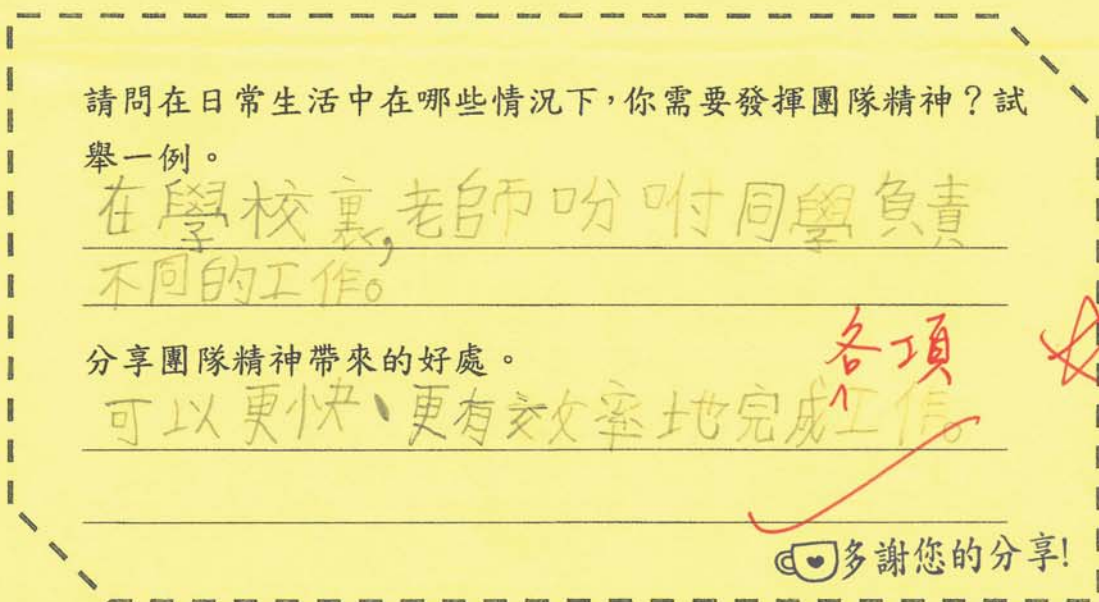 請問在日常生活中在哪些情況下,你需要發揮團隊精神?試
舉一例。
在學校裏,老師吩咐同學負責
不同的工作。
分享團隊精神帶來的好處。
各項
可以更快、更有效率地完成工作。
多謝您的分享!